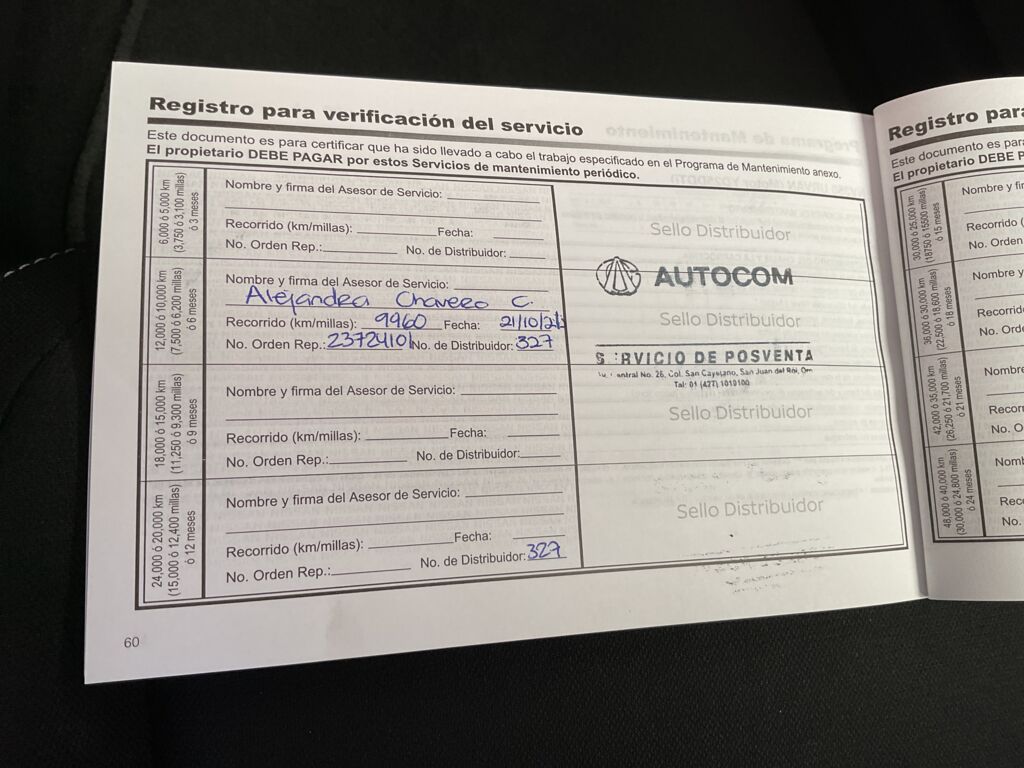 Registro para verificación del servicio
Este documento es para certificar que ha sido llevado a cabo el trabajo especificado en el Programa de Mantenimiento anexo.
El propietario DEBE PAGAR por estos Servicios de mantenimiento periódico.
6,000 ó 5,000 km
(3,750 ó 3,100 millas)
ó 3 meses
Nombre y firma del Asesor de Servicio:
Recorrido (km/millas): Fecha:
No. Orden Rep.: No. de Distribuidor:
Sello Distribuidor
12,000 ó 10,000 km
(7,500 ó 6,200 millas)
ó 6 meses
Nombre y firma del Asesor de Servicio:
Alejandra Chavero C.
Recorrido (km/millas): 9960 Fecha: 21/10/21
No. Orden Rep.: 23724101 No. de Distribuidor: 327
AUTOCOM
Sello Distribuidor
RVICIO DE POSVENTA
No. 26, Col. San Cayetano, San Juan del Rio,
Tel: 01 (427) 1010100
18,000 ó 15,000 km
(11,250 ó 9,300 millas)
ó 9 meses
Nombre y firma del Asesor de Servicio:
Recorrido (km/millas): Fecha:
No. Orden Rep.: No. de Distribuidor:
Sello Distribuidor
24,000 ó 20,000 km
(15,000 ó 12,400 millas)
ó 12 meses
Nombre y firma del Asesor de Servicio:
Recorrido (km/millas): Fecha:
No. Orden Rep.: No. de Distribuidor: 327
Sello Distribuidor
60
Registro para
Este documento es para
El propietario DEBE P
30,000 ó 25,000 km
(18750 ó 15500 millas)
ó 15 meses
Nombre y fir
Recorrido (
No. Orden
36,000 ó 30,000 km
(22,500 ó 18,600 millas)
ó 18 meses
Nombre y
Recorrid
No. Orde
42,000 ó 35,000 km
(26,250 ó 21,700 millas)
ó 21 meses
Nombre
Recor
No. O
48,000 ó 40,000 km
(30,000 ó 24,800 millas)
ó 24 meses
Nomb
Reco
No.